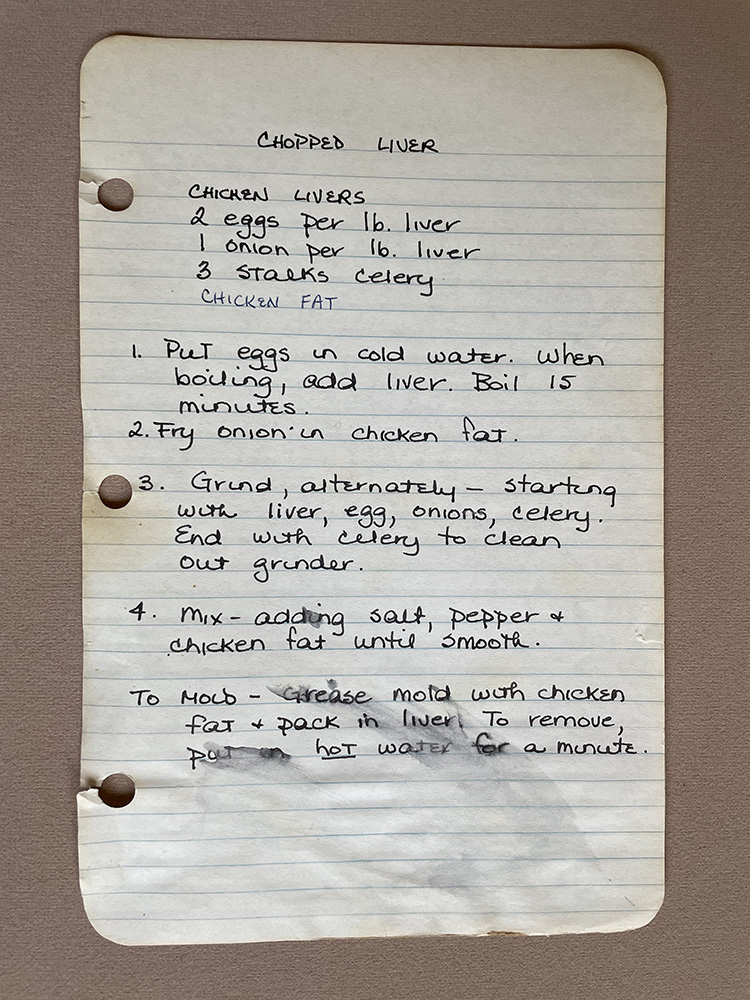 CHOPPED LIVER
CHICKEN LIVERS
2 eggs per lb. liver
1 onion per lb. liver
3 stalks celery
CHICKEN FAT
1. Put eggs in cold water. When
boiling, add liver. Boil 15
minutes.
2. Fry onion in chicken fat.
3. Grind, alternately – starting
with liver, egg, onions, celery.
End with celery to clean
out grinder.
4. Mix – adding salt, pepper +
chicken fat until smooth.
To Mold – Grease mold with chicken
fat + pack in liver. To remove,
put hot water for a minute.